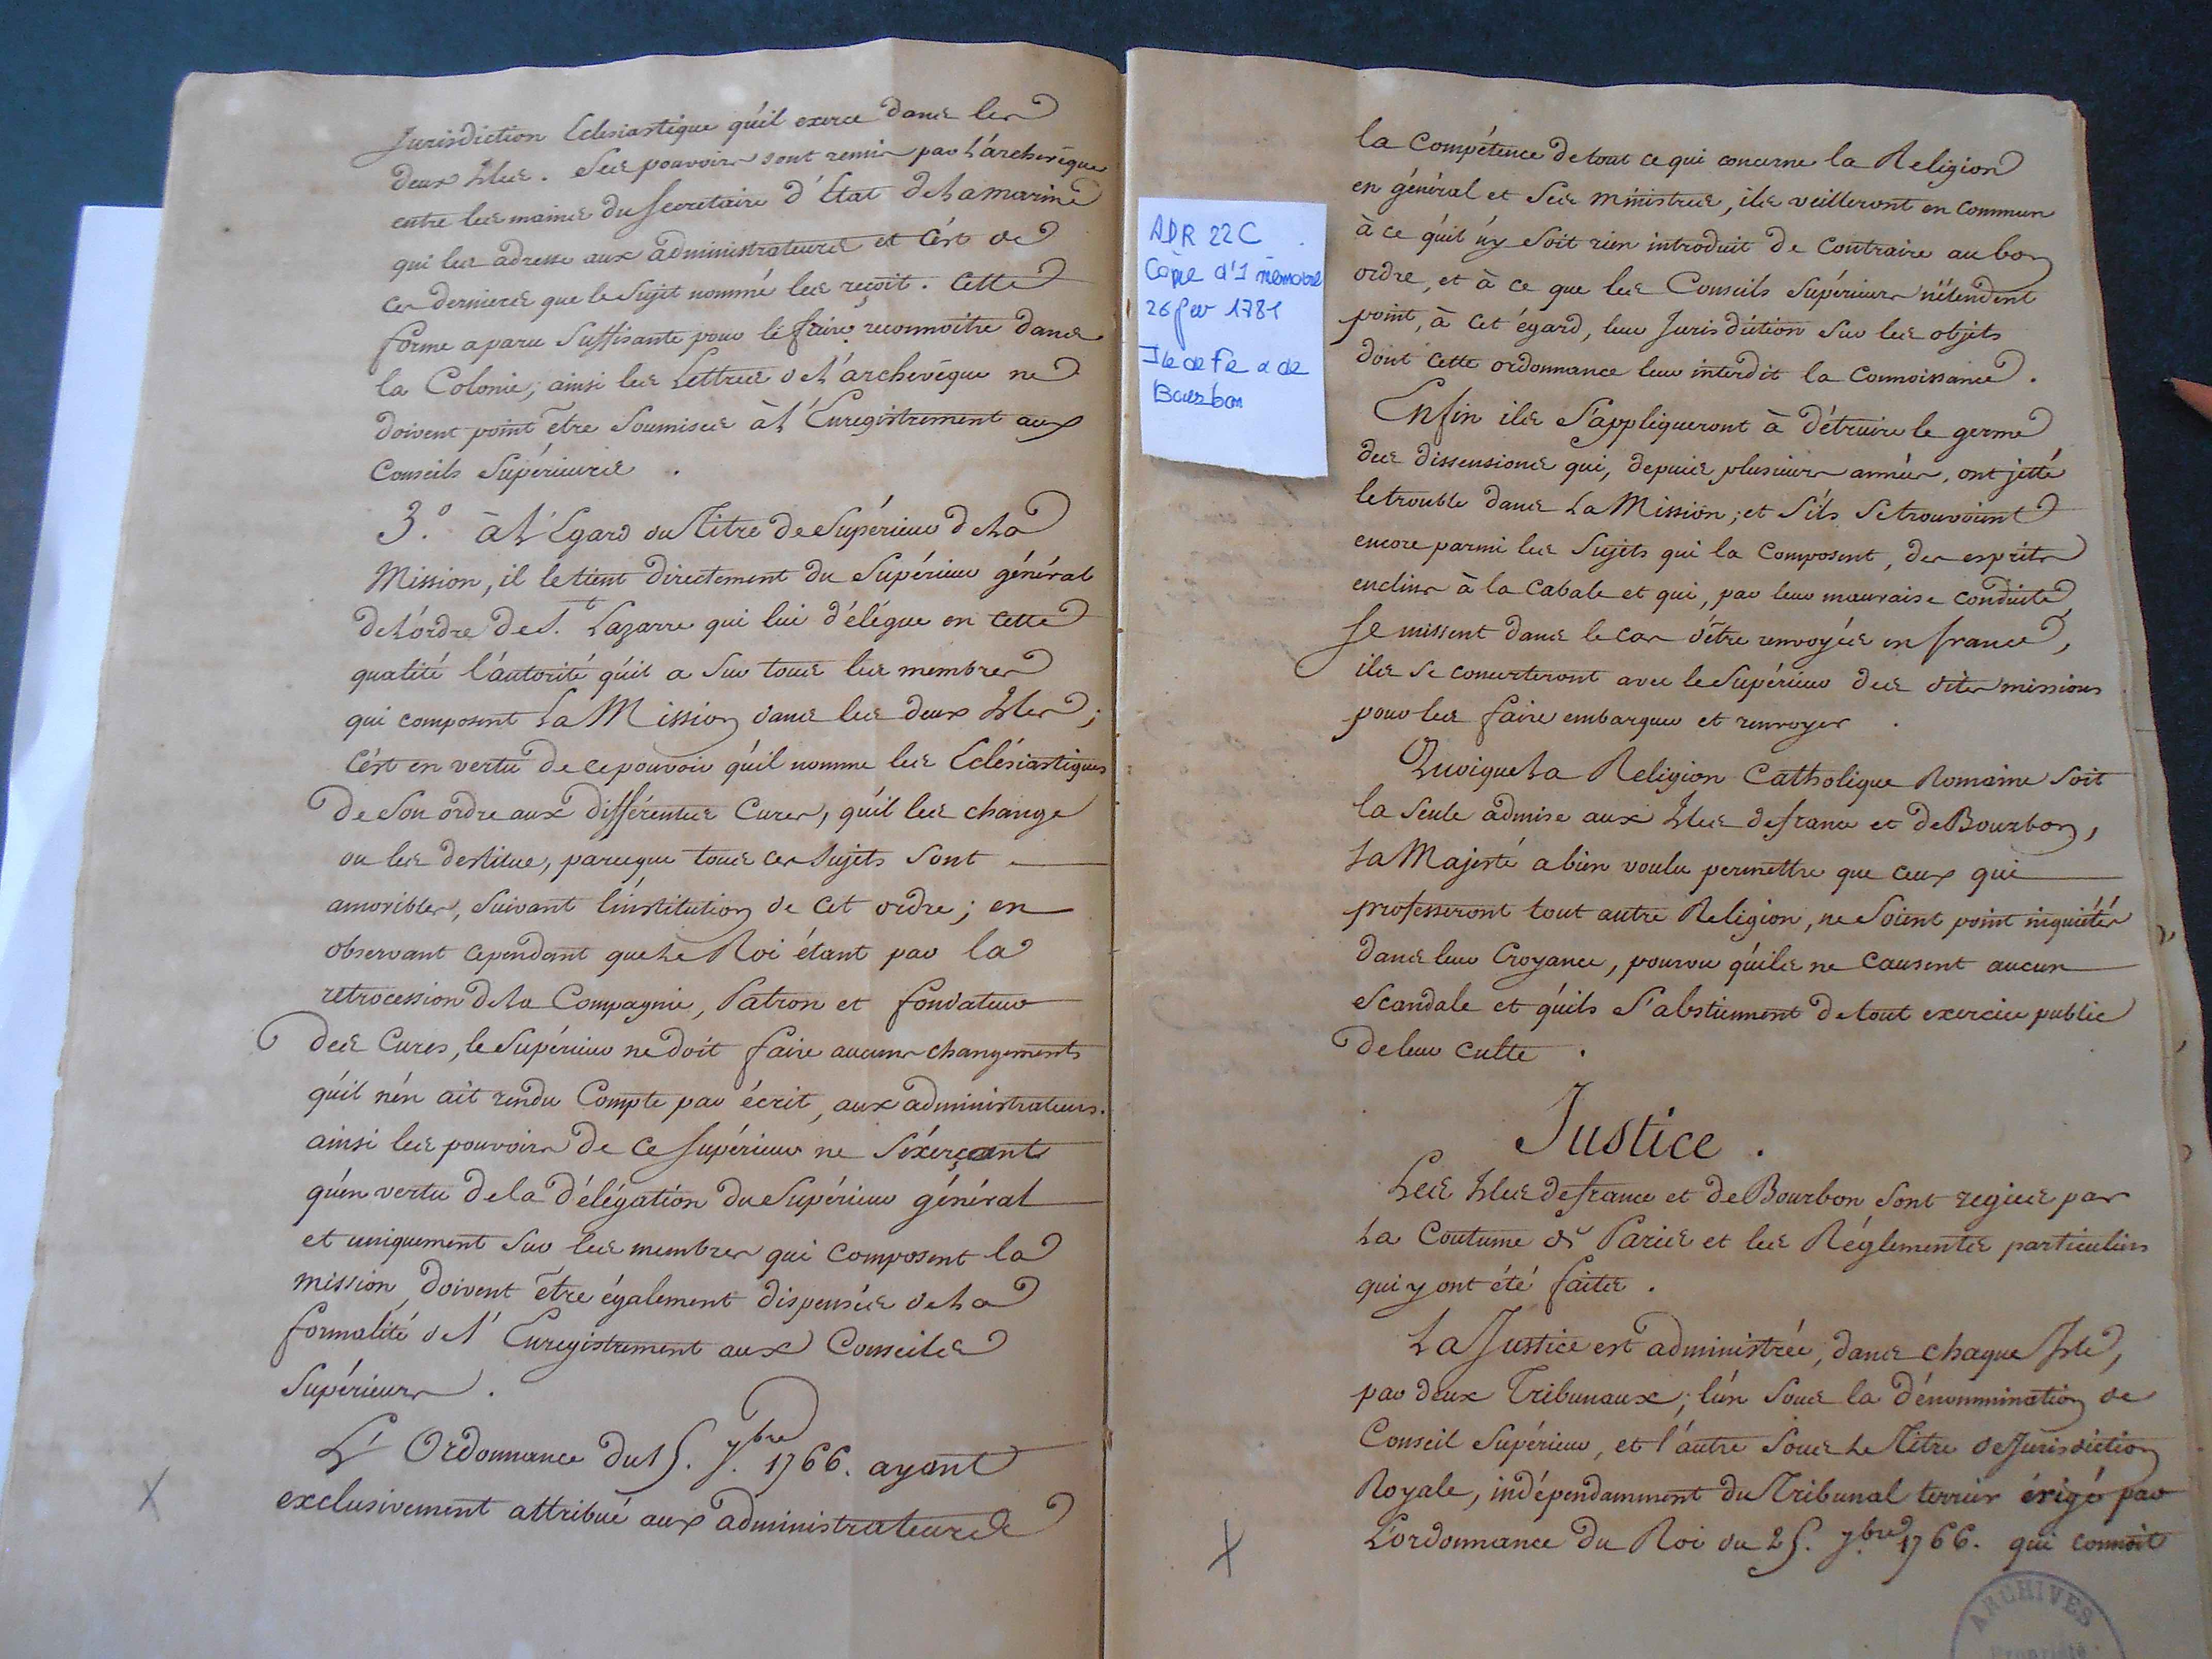 Jurisdiction Eclesiastique qu'il exerce dans les
deux Isles. Ses pouvoirs sont remis par l'archevêque
entre les mains du Secretaire d'État de la marine
qui les adresse aux administrateurs et c'est de
ces derniers que le Sujet nommé les reçoit. Cette
forme a paru Suffisante pour le faire reconnoitre dans
la Colonie; ainsi les Lettres de l'archevêque ne
doivent point être Soumises à l'Enregistrement aux
Conseils Supérieurs.
3.° à l'Egard du Titre de Supérieur de la
Mission, il le tient directement du Supérieur général
de l'ordre de St. Lazarre qui lui délégue en cette
qualité l'autorité qu'il a Sur tous les membres
qui composent la Mission dans les deux Isles;
C'est en vertu de ce pouvoir qu'il nomme les Eclésiastiques
de Son ordre aux différentes Cures, qu'il les change
ou les destitue, parceque tous ces Sujets Sont
amovibles, Suivant l'institution de cet ordre; en
observant cependant que le Roi étant par la
retrocession de la Compagnie, Patron et fondateur
des Cures, le Supérieur ne doit faire aucuns changements
qu'il n'en ait rendu Compte par écrit, aux administrateurs.
ainsi les pouvoirs de ce Supérieur ne S'éxerçant
qu'en vertu de la délégation du Supérieur général
et uniquement Sur les membres qui composent la
mission, doivent être également dispensés de la
formalité de l'Enregistrement aux Conseils
Supérieurs.
L'Ordonnance du 15. 7.bre 1766. ayant
exclusivement attribué aux administrateurs
X
ADR 22C
Copie d'1 mémoire
26 fev 1781
Ile de Fe & de
Bourbon
la Compétence de tout ce qui concerne la Religion
en général et Ses ministres, ils veilleront en commun
à ce qu'il n'y Soit rien introduit de Contraire au bon
ordre, et à ce que les Conseils Supérieurs n'étendent
point, à cet égard, leur Jurisdiction Sur les objets
dont cette ordonnance leur interdit la Connoissance.
Enfin ils S'appliqueront à détruire le germe
des dissensions qui, depuis plusieurs années, ont jetté
le trouble dans la Mission; et S'ils Se trouvoient
encore parmi les Sujets qui la Composent, des esprits
enclins à la Cabale et qui, par leur mauvaise conduite,
Se missent dans le cas d'être renvoyés en france,
ils Se concerteront avec le Supérieur des dites missions
pour les faire embarquer et renvoyer.
Quoique la Religion Catholique Romaine Soit
la Seule admise aux Isles de france et de Bourbon,
Sa Majesté a bien voulu permettre que ceux qui
professeront tout autre Religion, ne Soient point inquiétés
dans leur Croyance, pourvu qu'ils ne Causent aucun
Scandale et qu'ils S'abstiennent de tout exercice public
de leur Culte.
Justice.
Les Isles de france et de Bourbon Sont regies par
la Coutume de Paris et les Réglements particuliers
qui y ont été faits.
La Justice est administrée, dans chaque Isle,
par deux Tribunaux; l'un Sous la dénommination de
Conseil Supérieur, et l'autre Sous le Titre de Jurisdiction
Royale, indépendamment du Tribunal terrier érigé par
L'ordonnance du Roi du 25. 7.bre 1766. qui connoit
X
ARCHIVES